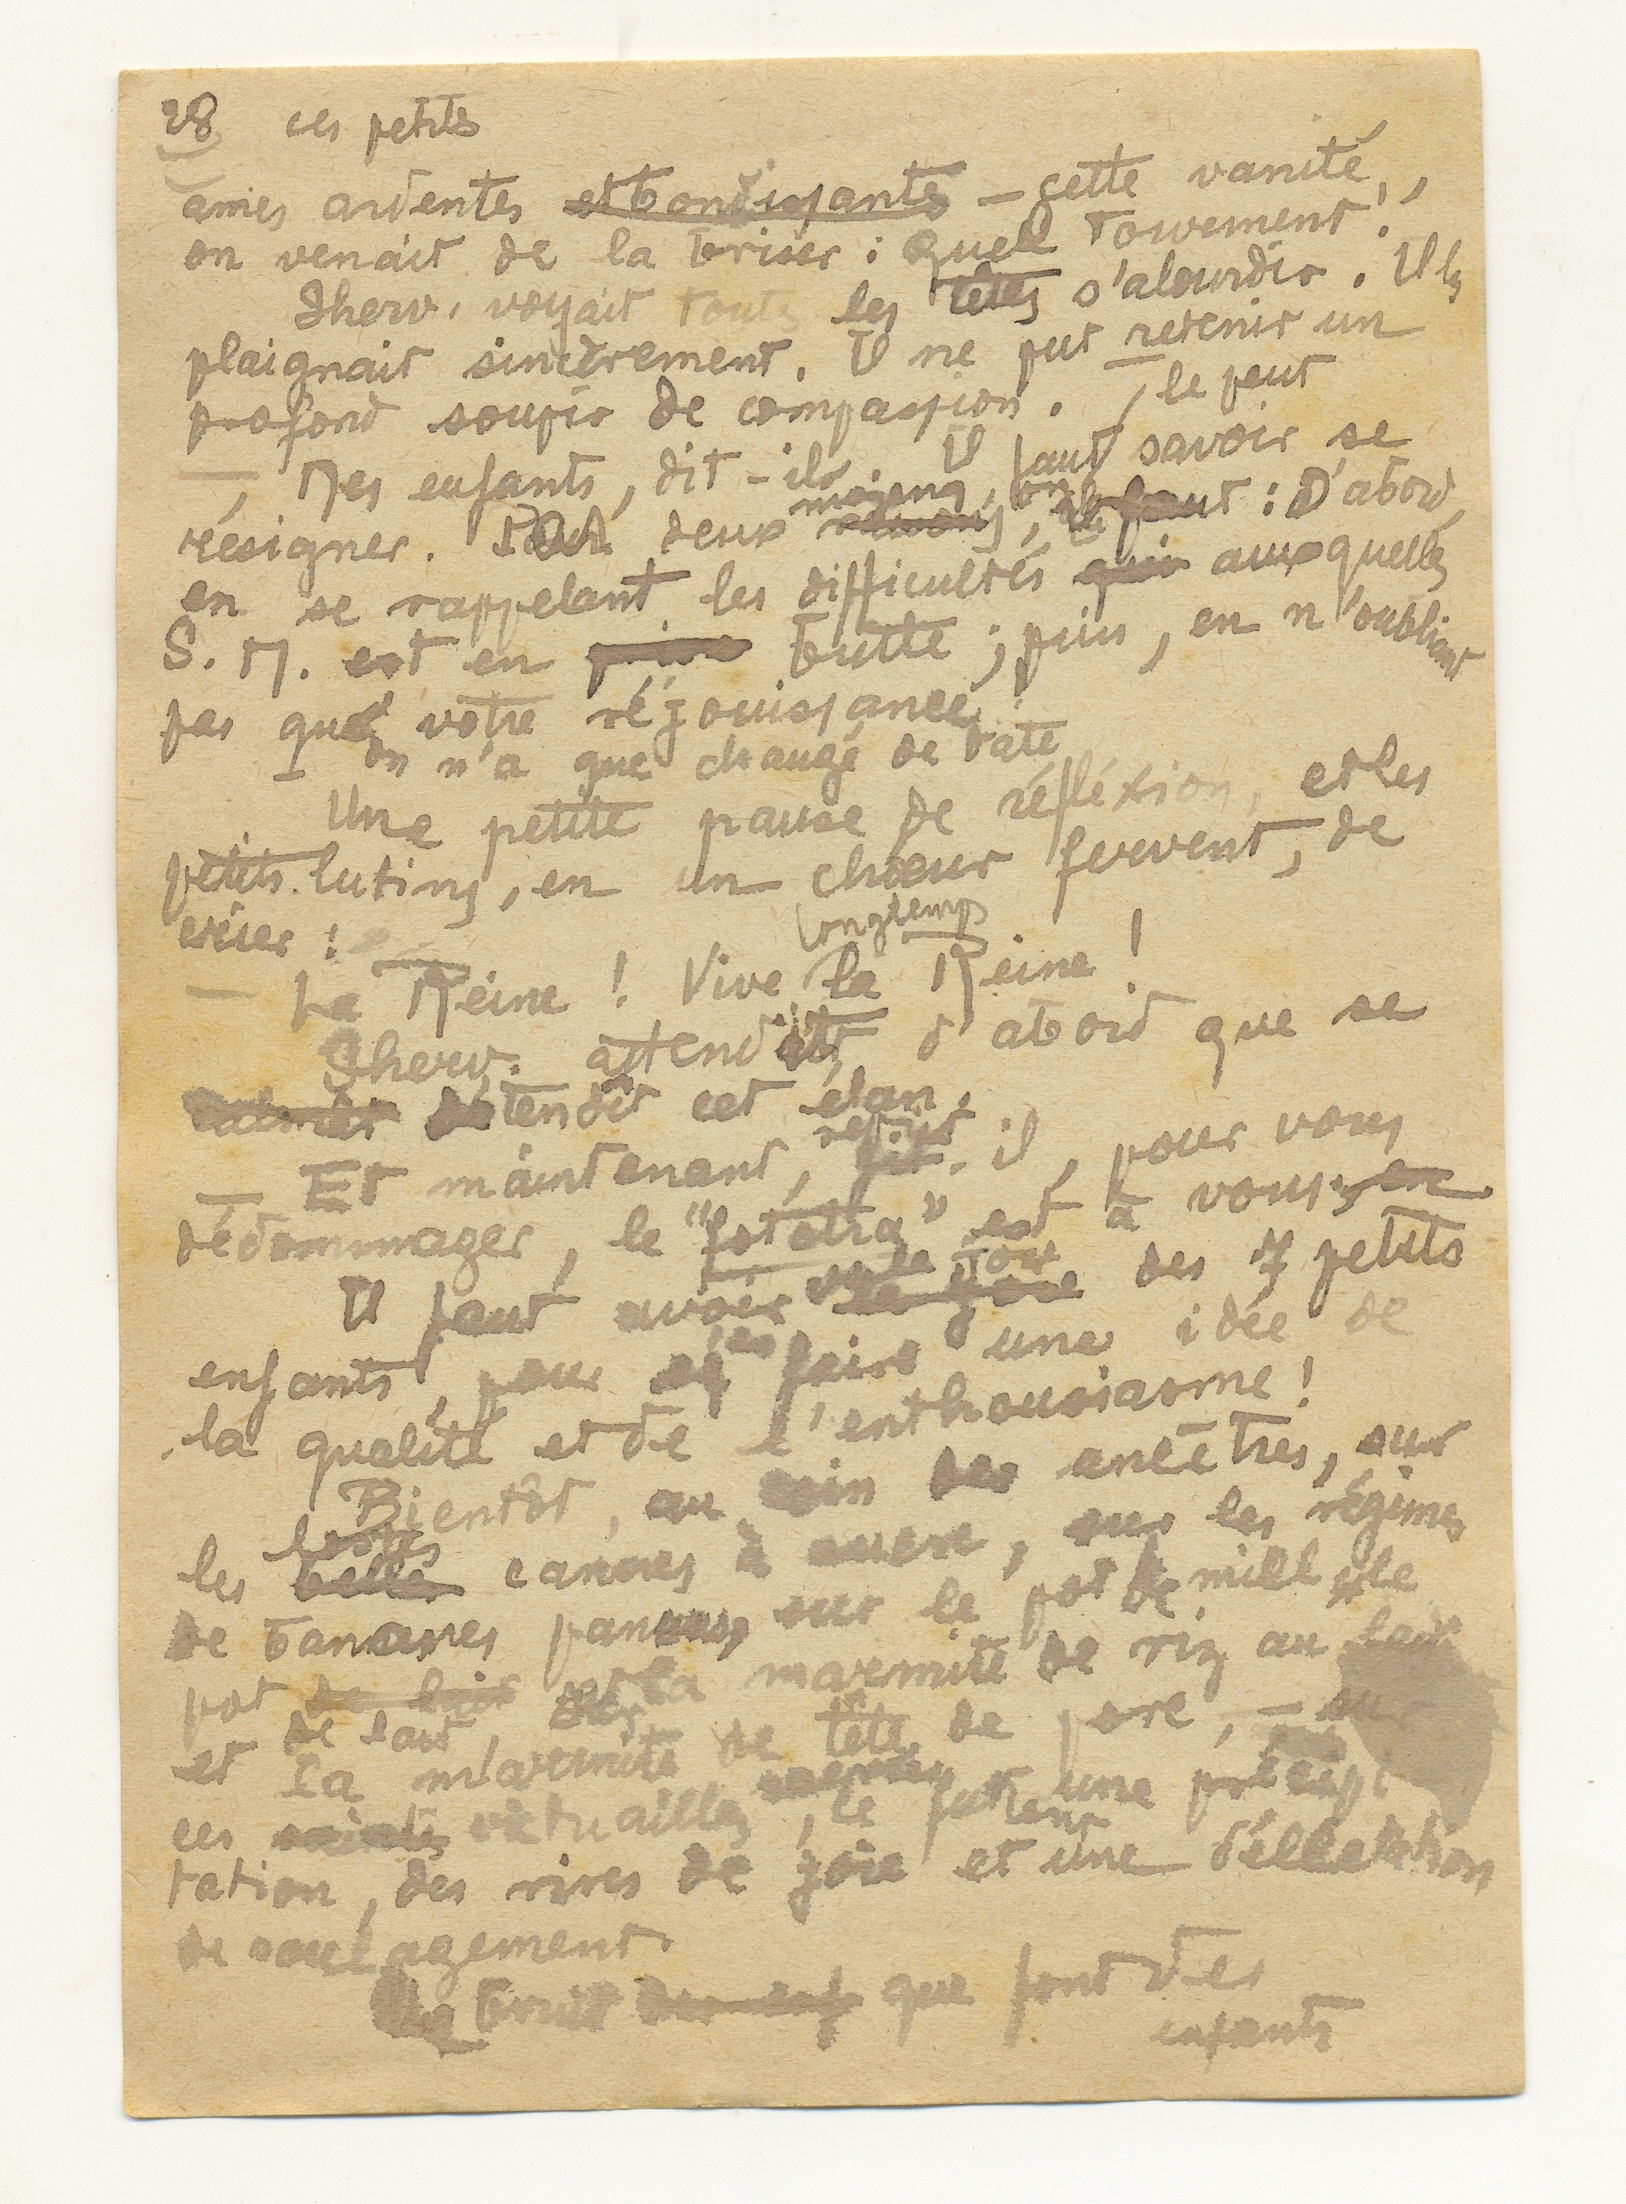 28 ces petits
âmes ardentes et bondissants — cette vanité,
on venait de la briser : Quel tourment !
Sherv. voyait toutes les têtes s'alourdir. Il les
plaignait sincèrement. Il ne put retenir un
profond soupir de compassion.
— Mes enfants, dit-il. Il faut savoir se
résigner. Par deux moyens, on le peut : D'abord,
en se rappelant les difficultés auxquelles
S. M. est en butte ; puis, en n'oubliant
pas que votre réjouissance
on n'a que changé de date
Une petite pause de réfléxion, et les
petits lutins, en un chœur fervent, de
crier :
— La Reine ! Vive longtemps la Reine !
Sherv. attendit d'abord que se
détendît cet élan.
— Et maintenant, reprit-il, pour vous
dédommager, le "fatatra" est à vous
Il faut avoir vu la joie des 7 petits
enfants, pour se faire une idée de
la qualité et de l'enthousiasme !
Bientôt, au coin des ancêtres, sur
les longues cannes à sucre, sur les régimes
de bananes pansus, sur le pot de miel, le
pot de lait, la marmite de riz au lait
et la marmite de tête de porc, — sur
ces victuailles, ce furent une précipi
tation, des rires de joie et une délectation
de soulagement.
Le bruit que font des
enfants